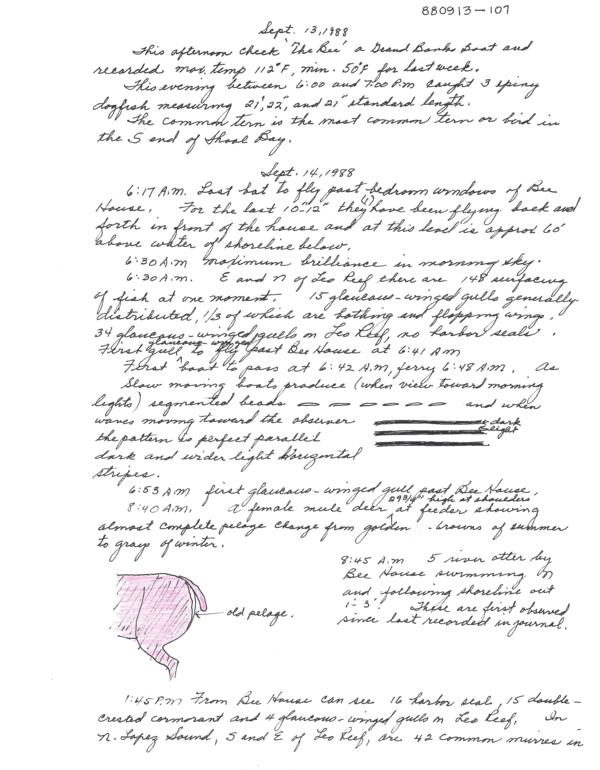 880913-107
Sept. 13, 1988
This afternoon check 'The Bee' a Grand Banks Boat and
recorded max. temp 112°F, min. 50°F for last week.
This evening between 6:00 and 7:00 P.m. caught 3 spiny
dogfish measuring 21", 22", and 21" standard length.
The common tern is the most common tern or bird in
the S end of Shoal Bay.
Sept. 14, 1988
6:17 A.M. Last bat to fly past bedroom windows of Bee
House. For the last 10-12" they (1) have been flying back and
forth in front of the house and at this level is approx 60'
above water of shoreline below.
6:30 A.M maximum brilliance in morning sky.
6:30 A.M. E and N of Leo Reef there are 148 surfacing
of fish at one moment. 15 glaucous-winged gulls generally
distributed, 1/3 of which are bathing and flopping wings.
34 glaucous-winged gulls on Leo Reef, no harbor seals.
First glaucous-winged gull to fly past Bee House at 6:41 AM
First boat to pass at 6:42 A.M, ferry 6:48 A.M. As
slow moving boats produce (when view toward morning
lights) segmented beads and when
waves moving toward the observer dark
the pattern is perfect parallel light
dark and wider light horizontal
stripes.
6:53 A.M first glaucous-winged gull past Bee House.
8:40 A.M. A female mule deer at feeder showing
high at shoulders
almost complete pelage change from golden-browns of summer
to grays of winter.
8:45 A.m 5 river otter by
Bee House swimming N
and following shoreline out
1-3'. These are first observed
since last recorded in journal.
old pelage.
1:45 P.M From Bee House can see 16 harbor seal, 15 double-
crested cormorant and 4 glaucous-winged gulls on Leo Reef. In
N. Lopez Sound, S and E of Leo Reef, are 42 common murres in